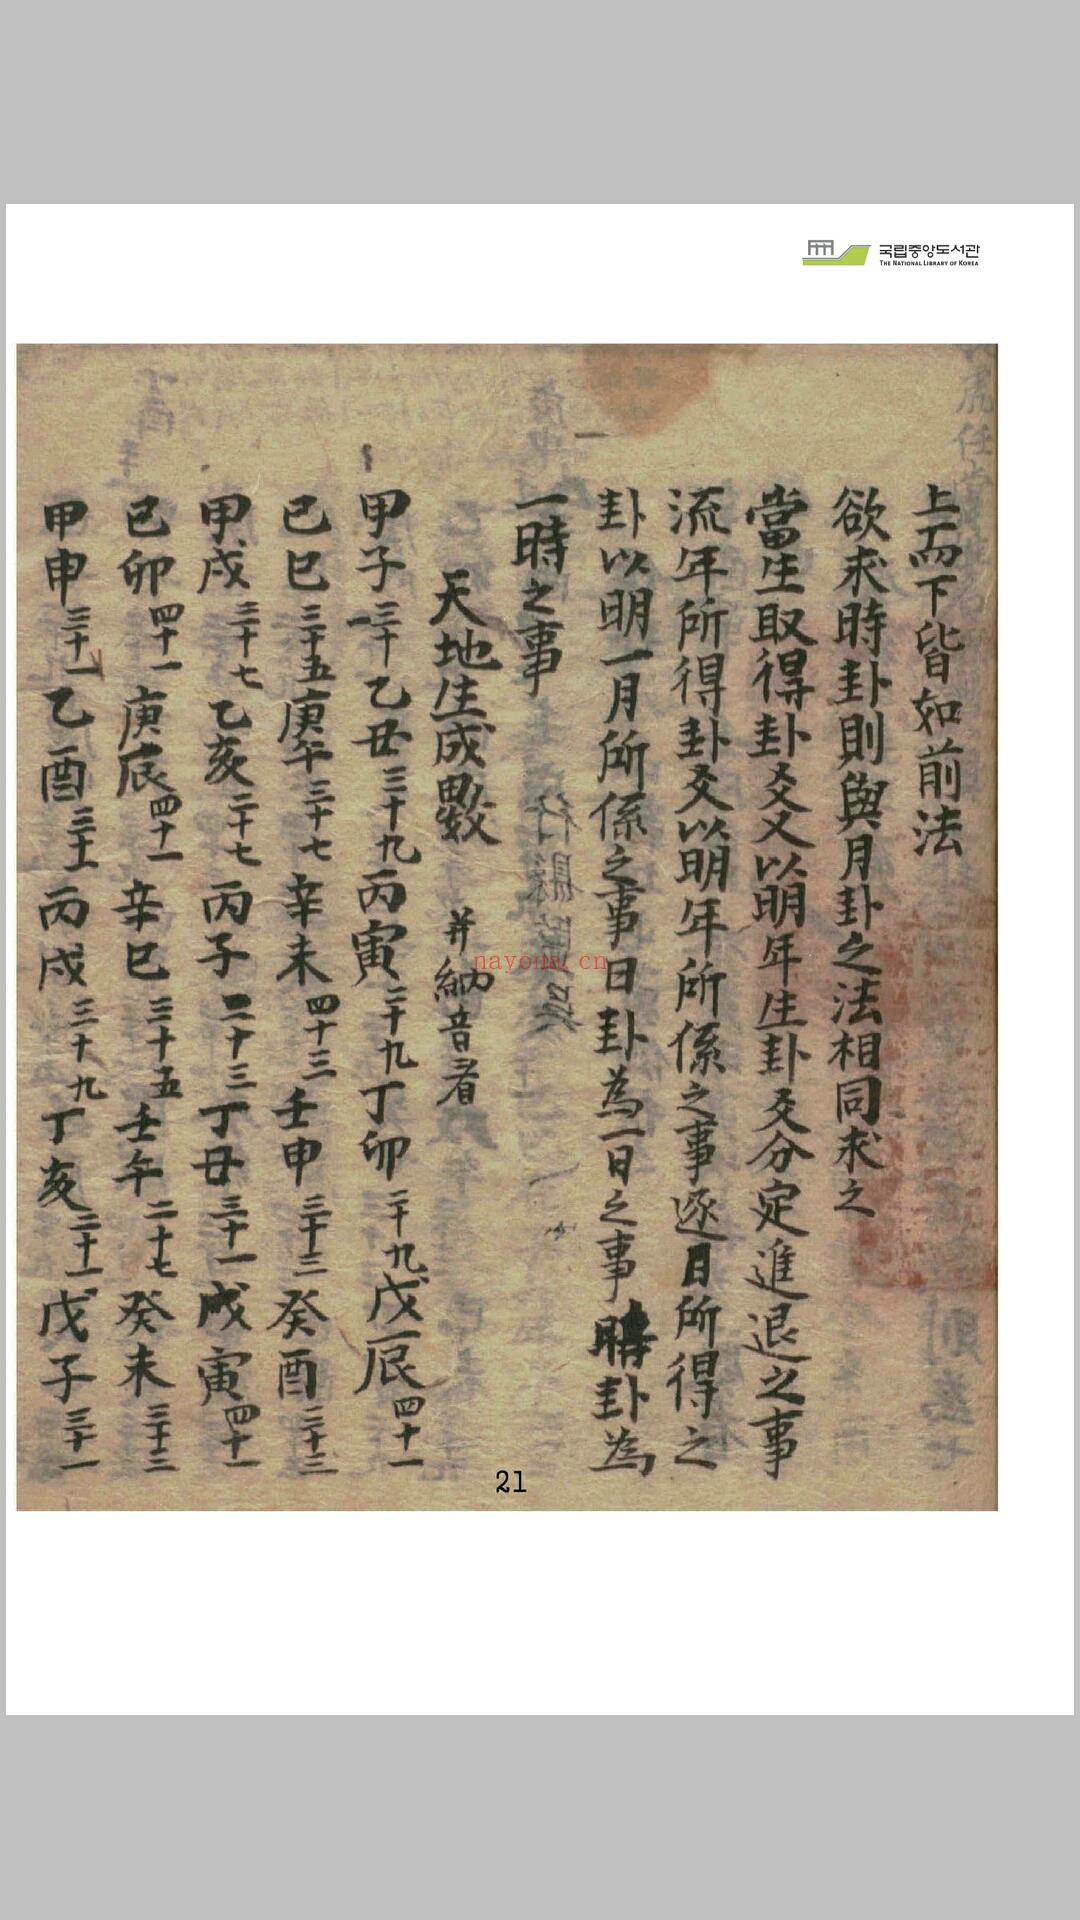 국립중앙도서관
THE NATIONAL LIBRARY OF KOREA
上而下皆如前法
欲求時卦則與月卦之法相同求之
當生取得卦爻又以明年生卦爻分定進退之事
流年所得卦爻以明年所係之事逐日所得之
卦以明一月所係之事日卦為一日之事時卦為
一時之事
天地生成數 并納音看
甲子三十一乙丑三十九丙寅二十九丁卯二十九戊辰四十一
己巳三十五庚午三十七辛未四十三壬申三十三癸酉三十三
甲戌三十七乙亥二十七丙子二十三丁丑三十一戊寅四十一
己卯四十一庚辰四十一辛巳三十五壬午二十七癸未三十三
甲申三十一乙酉三十一丙戌三十九丁亥二十一戊子三十一
nayona.cn
21